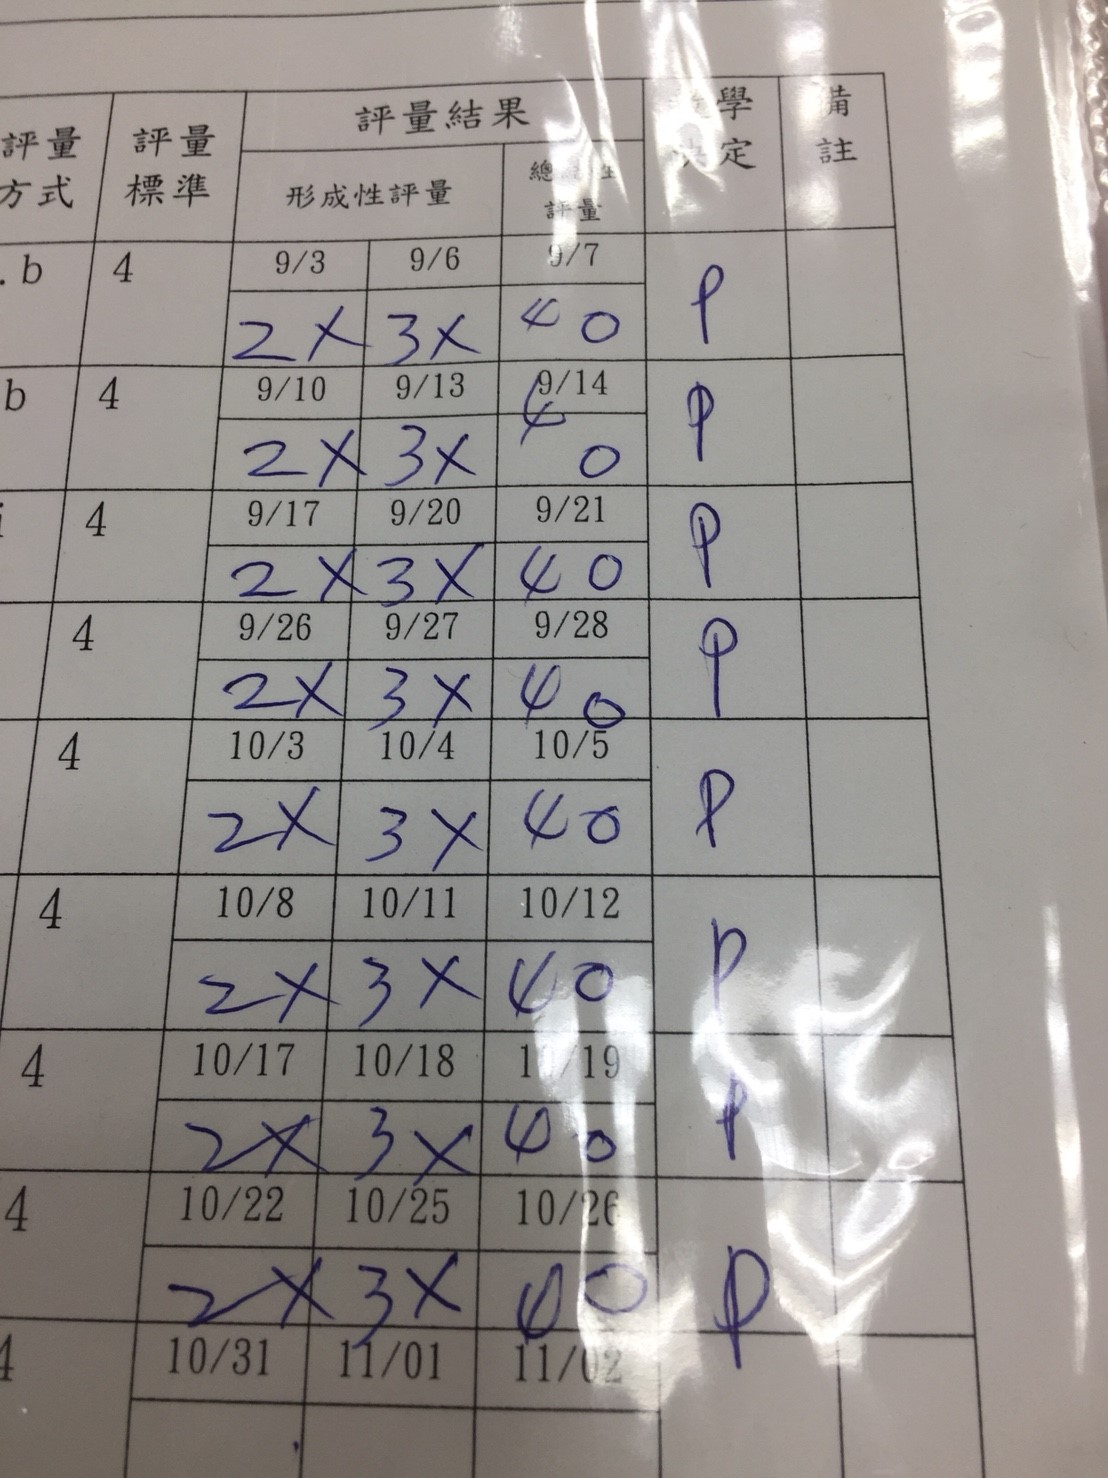 評量方式 評量標準 評量結果 學決定 備註
形成性評量 總性評量
.b 4 9/3 9/6 9/7 P
2X 3X 40
b 4 9/10 9/13 9/14 P
2X 3X 40
i 4 9/17 9/20 9/21 P
2X 3X 40
4 9/26 9/27 9/28 P
2X 3X 40
4 10/3 10/4 10/5 P
2X 3X 40
4 10/8 10/11 10/12 P
2X 3X 40
4 10/17 10/18 10/19 P
2X 3X 40
4 10/22 10/25 10/26 P
2X 3X 40
4 10/31 11/01 11/02